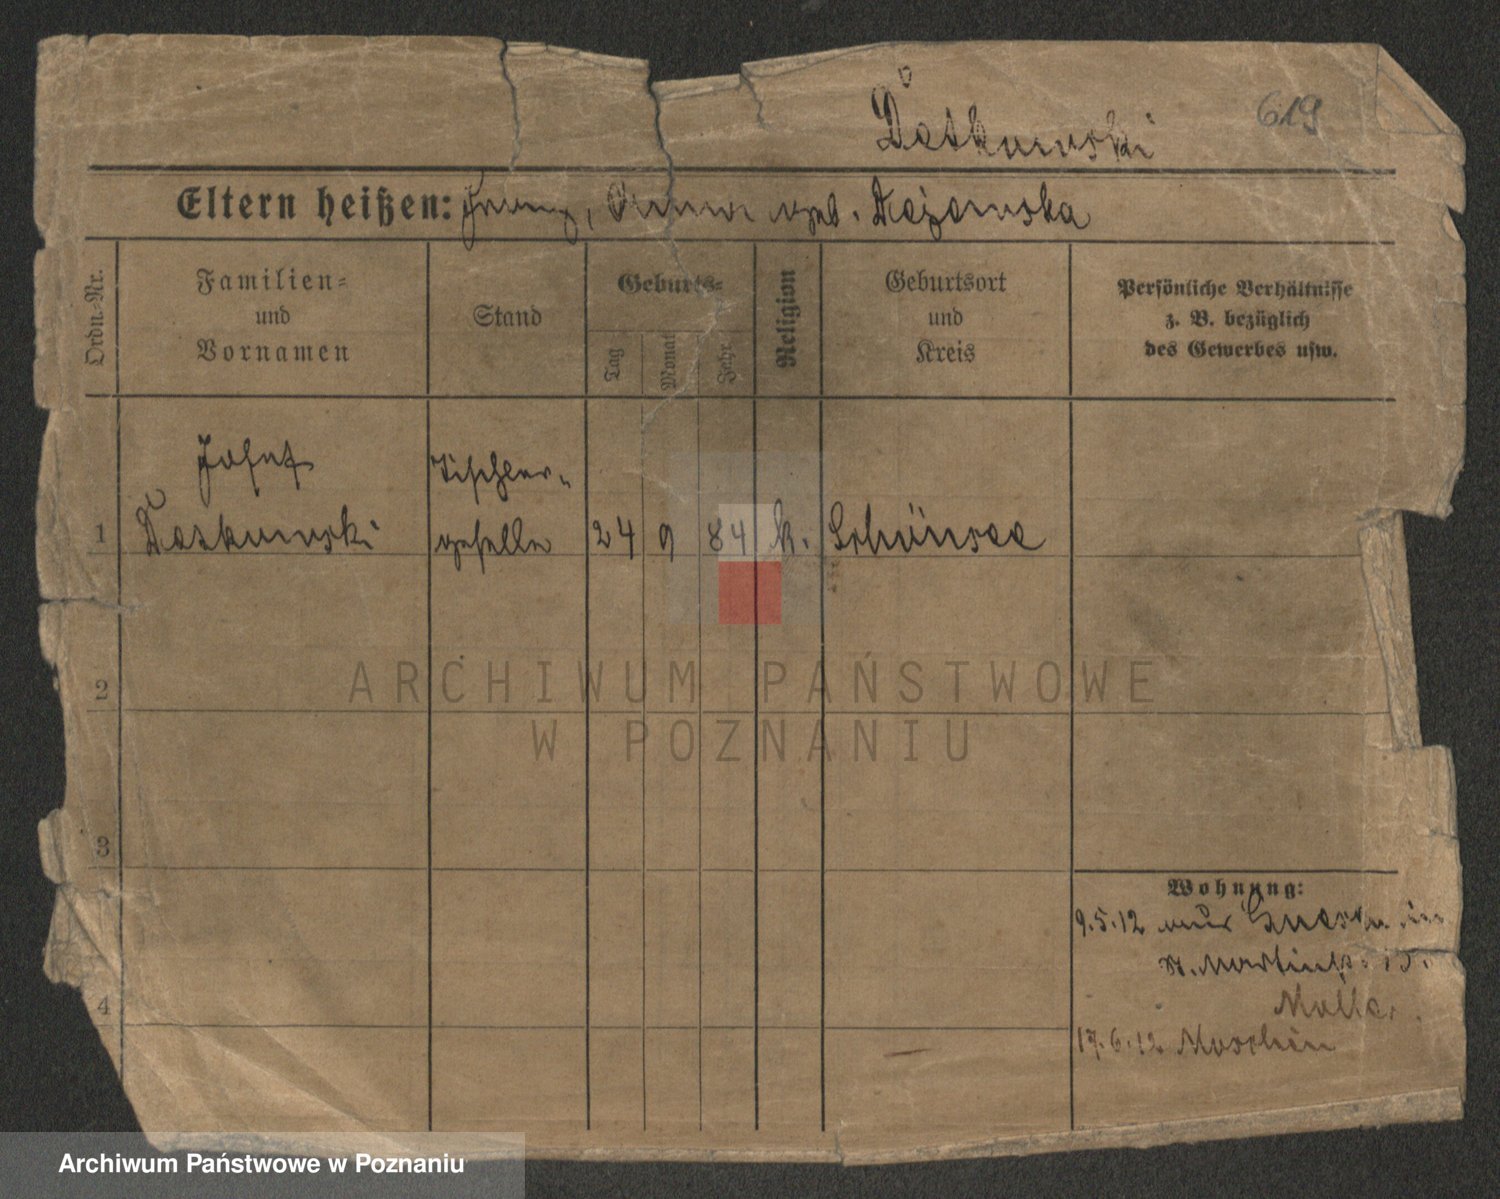 619
Eltern heißen: Franz, Anna geb.
Ordn.-Nr.
Familien-
und
Vornamen
Stand
Geburts-
Tag
Monat
Jahr
Religion
Geburtsort
und
Kreis
Persönliche Verhältnisse
z. B. bezüglich
des Gewerbes usw.
Josef
Tischler-
1
geselle 24 9 84 k. Schönsee
2
3
4
Wohnung:
9.5.12 aus Gnesen in
St. Martinstr.
17.6.12 Moschin
ARCHIWUM PAŃSTWOWE
W POZNANIU
Archiwum Państwowe w Poznaniu